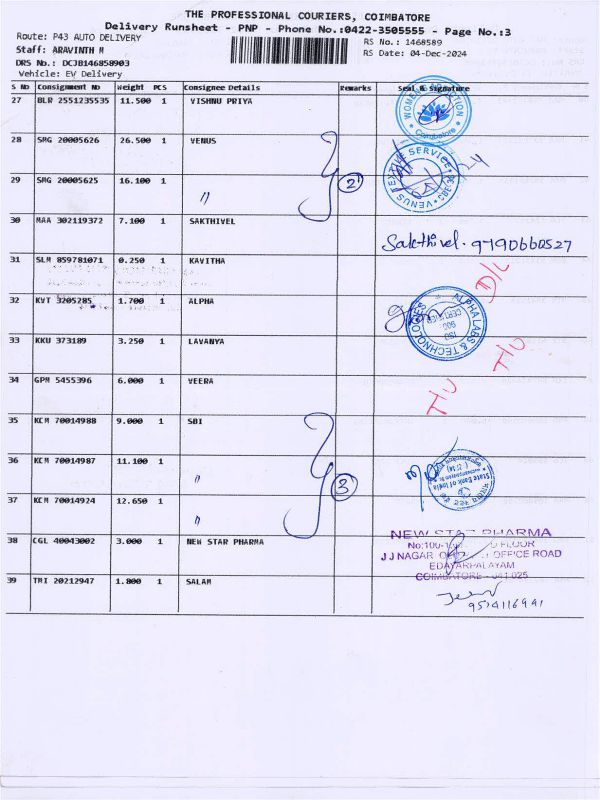 THE PROFESSIONAL COURIERS, COIMBATORE
Delivery Runsheet - PNP - Phone No.:0422-3505555 - Page No.:3
Route: P43 AUTO DELIVERY
RS No.: 1468589
Staff: ARAVINTH M
RS Date: 04-Dec-2024
DRS No.: DCJB146858903
Vehicle: EV Delivery
S No Consignment No Weight PCS Consignee Details Remarks Seal & Signature
27 BLR 2551235535 11.500 1 VISHNU PRIYA
Coimbatore
28 SMG 20005626 26.500 1 VENUS
VENUS TEXTIVE SERVICE
29 SMG 20005625 16.100 1 〃 2
30 MAA 302119372 7.100 1 SAKTHIVEL Sakthivel. 9790660527
31 SLM 859781071 0.250 1 KAVITHA D/L
32 KVT 3205285 1.700 1 ALPHA
ALPHA LABS & TECHNOLOGIES
ISO
33 KKU 373189 3.250 1 LAVANYA
34 GPM 5455396 6.000 1 VEERA
35 KCM 70014988 9.000 1 SBI
36 KCM 70014987 11.100 1 〃 3
State Bank of India
37 KCM 70014924 12.650 1 〃
38 CGL 40043002 3.000 1 NEW STAR PHARMA
NEW STAR PHARMA
FLOOR
JJ NAGAR OFFICE ROAD
EDAYARPALAYAM
COIMBATORE - 641 025
39 TRI 20212947 1.800 1 SALAM